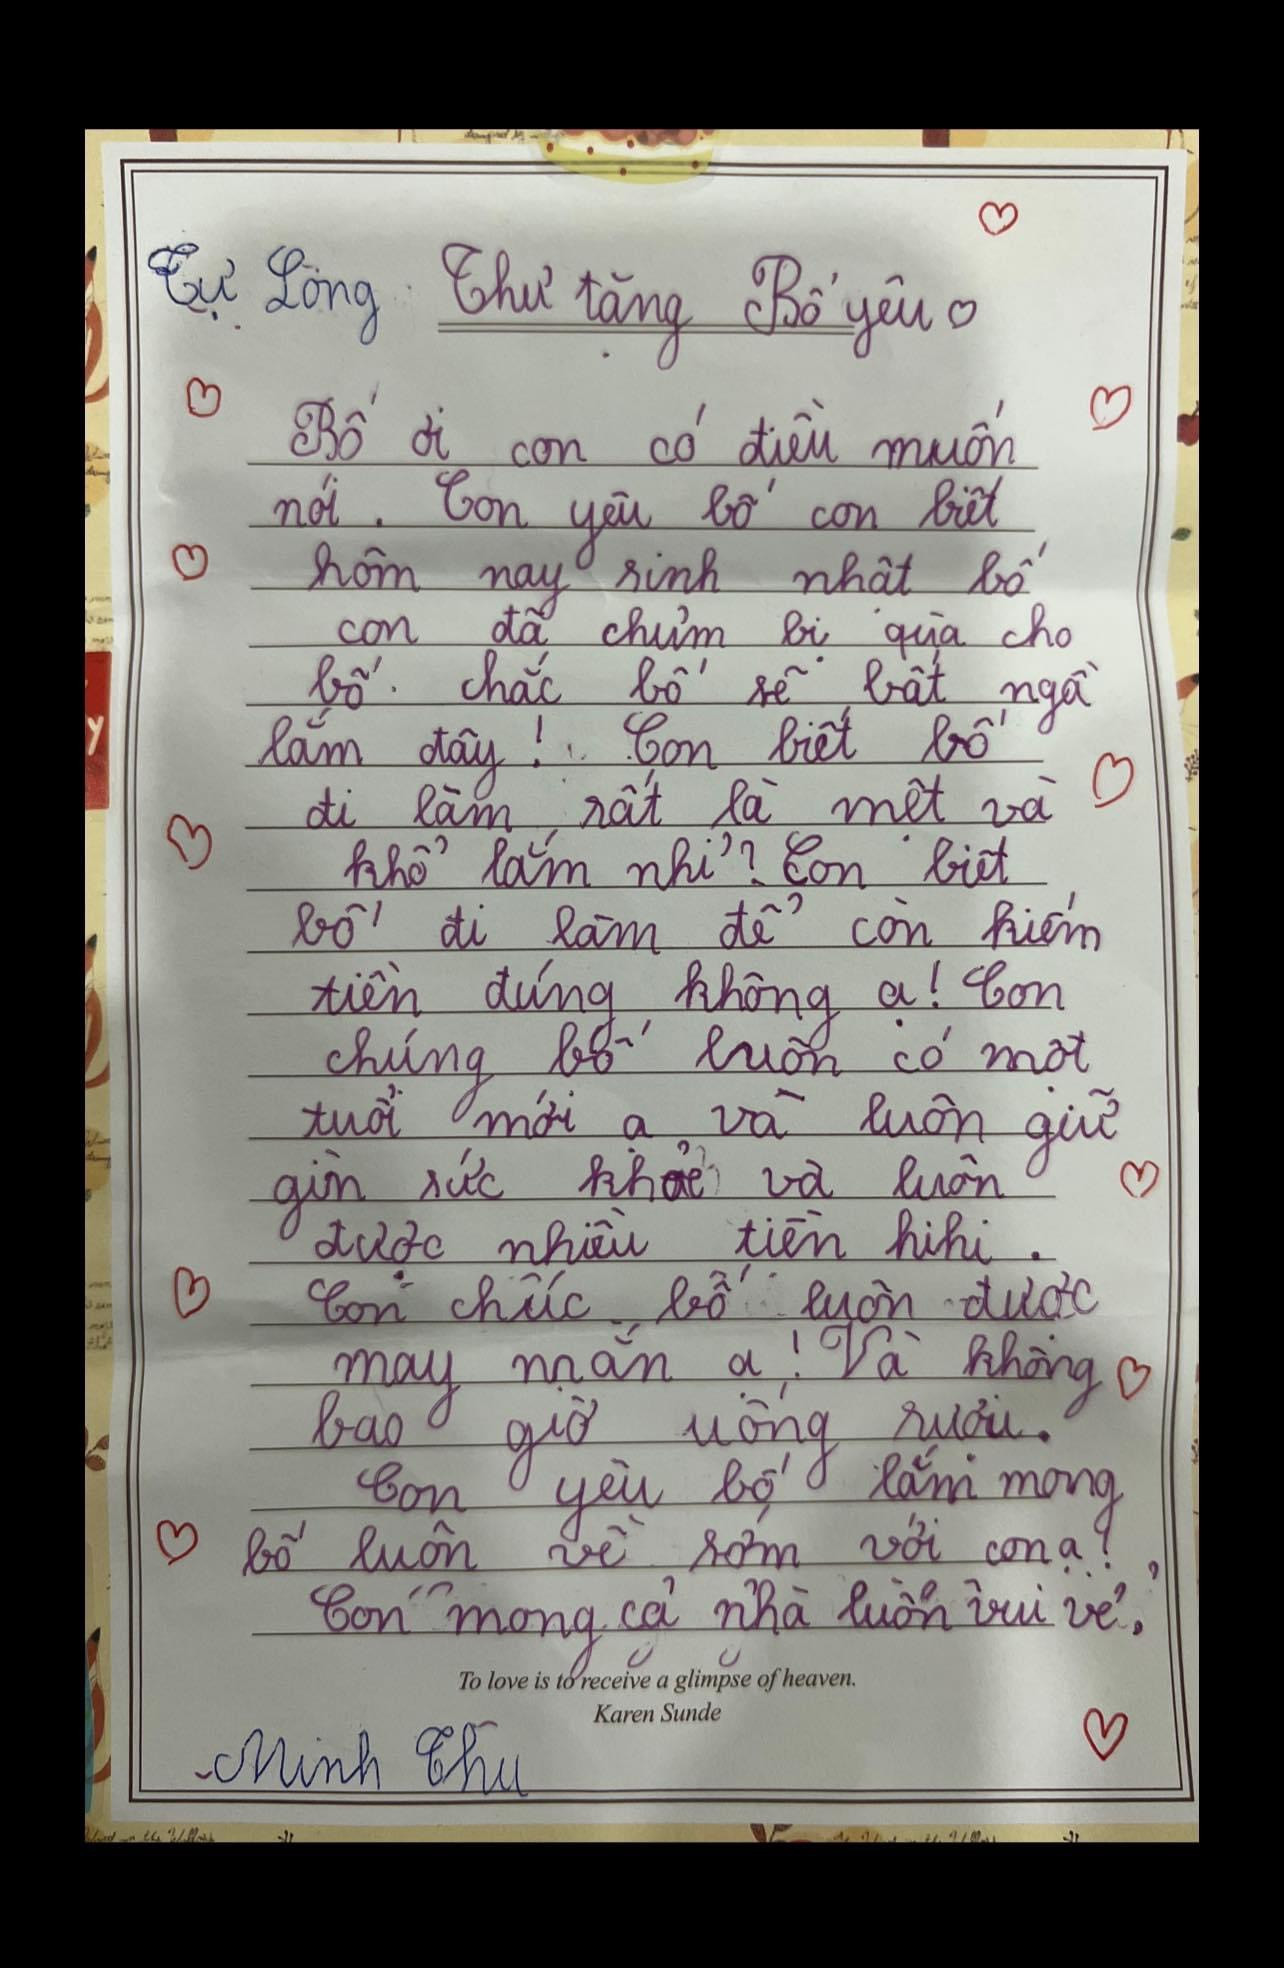 Tự Lòng Thư tặng Bố yêu
Bố ơi con có điều muốn
nói. Con yêu bố con biết
hôm nay sinh nhât bố
con đã chửm bị qùa cho
bố. chắc bố sẽ bất ngờ
lắm đây! Con biết bố
đi làm rất là mêt và
khổ lắm nhỉ? Con biết
bố đi làm để còn kiếm
tiền đúng không ạ! Con
chúng bố luôn có môt
tuổi mới ạ và luôn giữ
gìn sức khoẻ và luôn
được nhiều tiền hihi.
Con chúc bố luôn được
may mắn ạ! Và không
bao giờ uống rượu.
Con yêu bố lắm mong
bố luôn về sớm với con ạ!
Con mong cả nhà luôn vui vẻ.
To love is to receive a glimpse of heaven.
Karen Sunde
Minh Thu